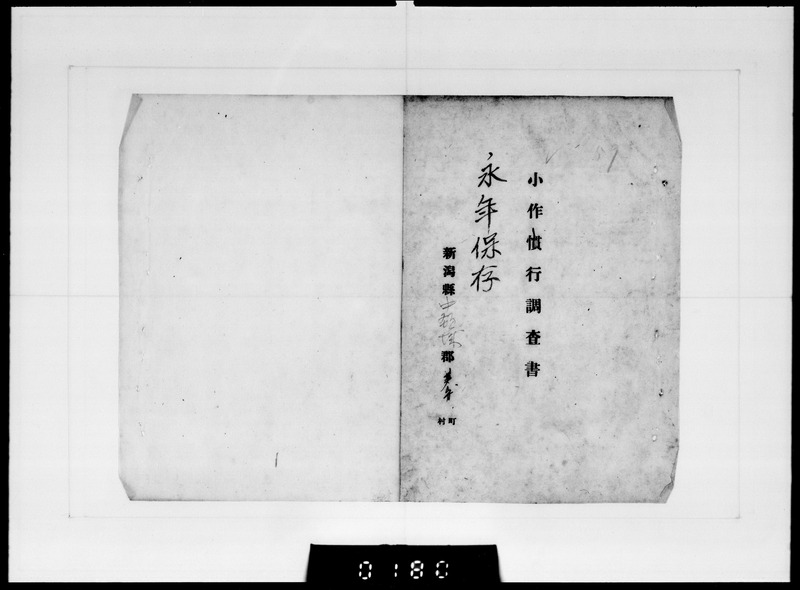 小作慣行調査書
永年保存
新潟縣中頸城郡
町村
0180